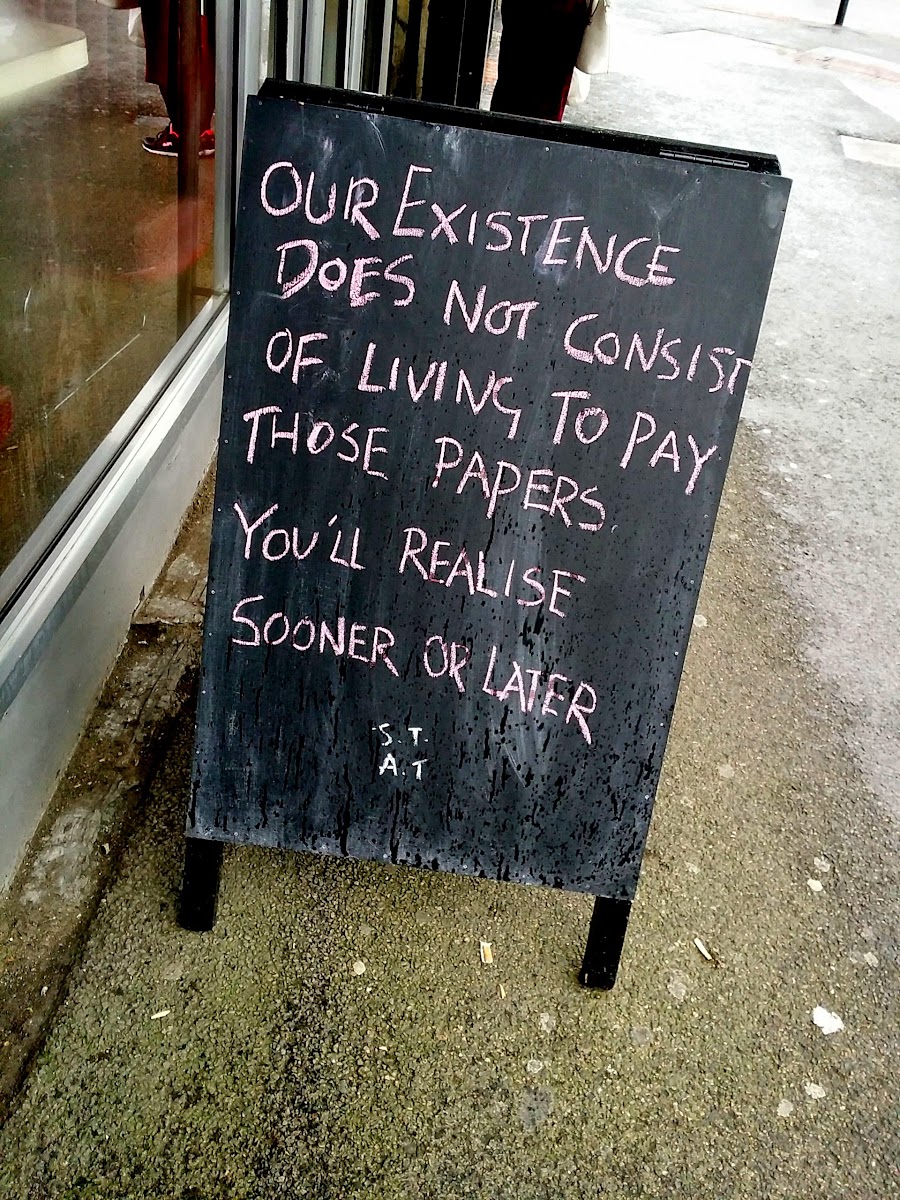 OUR EXISTENCE
DOES NOT CONSIST
OF LIVING TO PAY
THOSE PAPERS
YOU'LL REALISE
SOONER OR LATER
S.T.
A.T